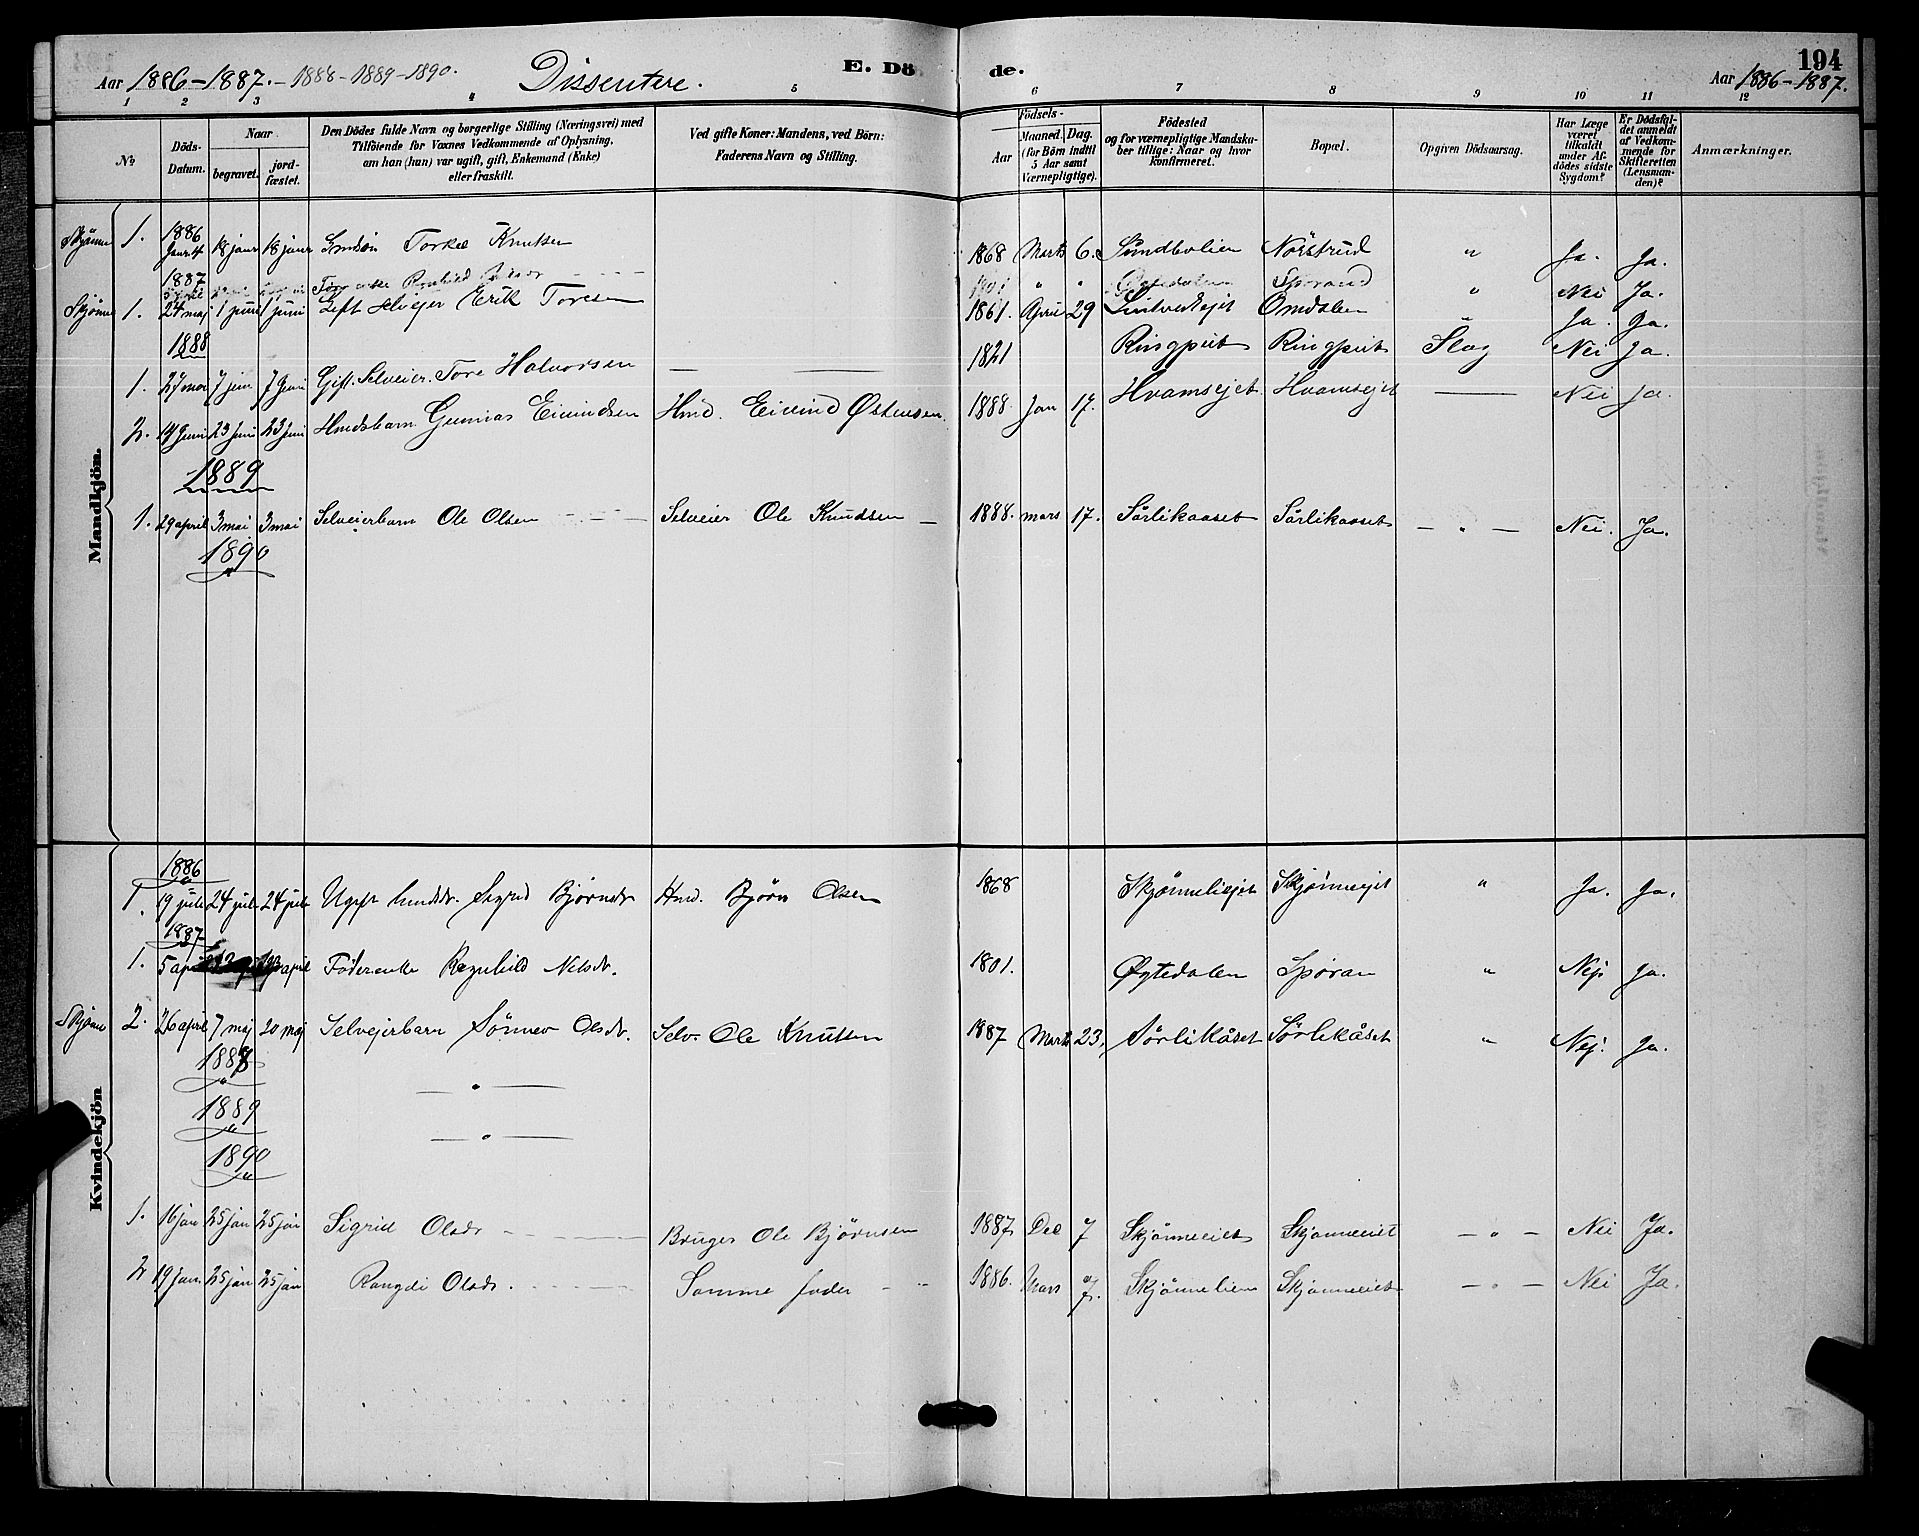 194
Aar 1886-1887. - 1888 - 1889 - 1890. Dissentere. E. Döde. Aar 1886-1887.
1 2 3 4 5 6 7 8 9 10 11 12
No
Döds-Datum.
Naar
begravet.
jordfæstet.
Den Dödes fulde Navn og borgerlige Stilling (Næringsvei) med
Tilföiende for Voxnes Vedkommende af Oplysning,
om han (hun) var ugift, gift, Enkemand (Enke)
eller fraskilt.
Ved gifte Koner: Mandens, ved Börn:
Faderens Navn og Stilling.
Födsels-
Aar
Maaned. Dag.
(for Börn indtil
5 Aar samt
Værnepligtige).
Födested
og for værnepligtige Mandska-
ber tillige: Naar og hvor
konfirmeret.
Bopæl.
Opgiven Dödsaarsag.
Har Læge
været
tilkaldt
under Af-
dödes sidste
Sygdom?
Er Dödsfal-
det anmeldt
af Vedkom-
mende for
Skifteretten
(Lensman-
den)?
Anmærkninger.
Mandkjön.
1886
Skjønne 1. 18 janr 18 janr Torkel Knutsen 1868 Marts 6. Sundbolien Nörstrud " Ja. Ja.
1887
Ragnhild 1801 " " Øgtedalen Sporand " Nei Ja.
Skjønne 1. 24 maj 1 juni 1 juni Gift Selvejer Erik Toresen 1861. April 29 Omdalen Ja. Ja.
1888
1. 27 mai 7 juni 7 juni Gift. Selveier. Tore Halvorsen — — 1821 Ringput Ringput Slag Nei Ja.
2. 14 juni 23 juni 23 juni Husmdsbarn Gunnar Eivindsen Hmd. Eivind Østensen 1888 Jan 17. Hvamsejet Hvamsejet — Nei Ja.
1889
1. 29 april 3 mai 3 mai Selveierbarn Ole Olsen Selveier Ole Knudsen — 1888. mars 17. Sørlikaaset Sørlikaaset — " — Nei. Ja.
1890
"
Kvindekjön
1886
1. 19 juli 24 juli 24 juli Ugift Bjørnsdr Hmd. Bjørn Olsen 1868 Skjønneliejet Skjønneejet " Ja. Ja.
1887
1. 5 april april Føderenke Ragnhild Nelsdr. 1801. Øgtedalen Sporan " Nej. Ja.
Skjønne 2. 26 april 7 maj 20 maj Selvejerbarn Sønnev Olsdr. Selv. Ole Knutsen 1887 Marts 23. Sørlikåset Sørlikåset " Nej. Ja.
1888
— " —
1889
— " —
1890
"
1. 16 jan 25 jan 25 jan Sigrid Olsdr Bruger Ole Bjørnsen 1887 Dec 7 Skjønneeiet Skjønneeiet — " — Nei Ja.
2 19 jan 25 jan 25 jan Rangdi Olsdr. Samme fader 1886. Mars 7. Skjønnelien Skjønneeiet — " — Nei Ja.